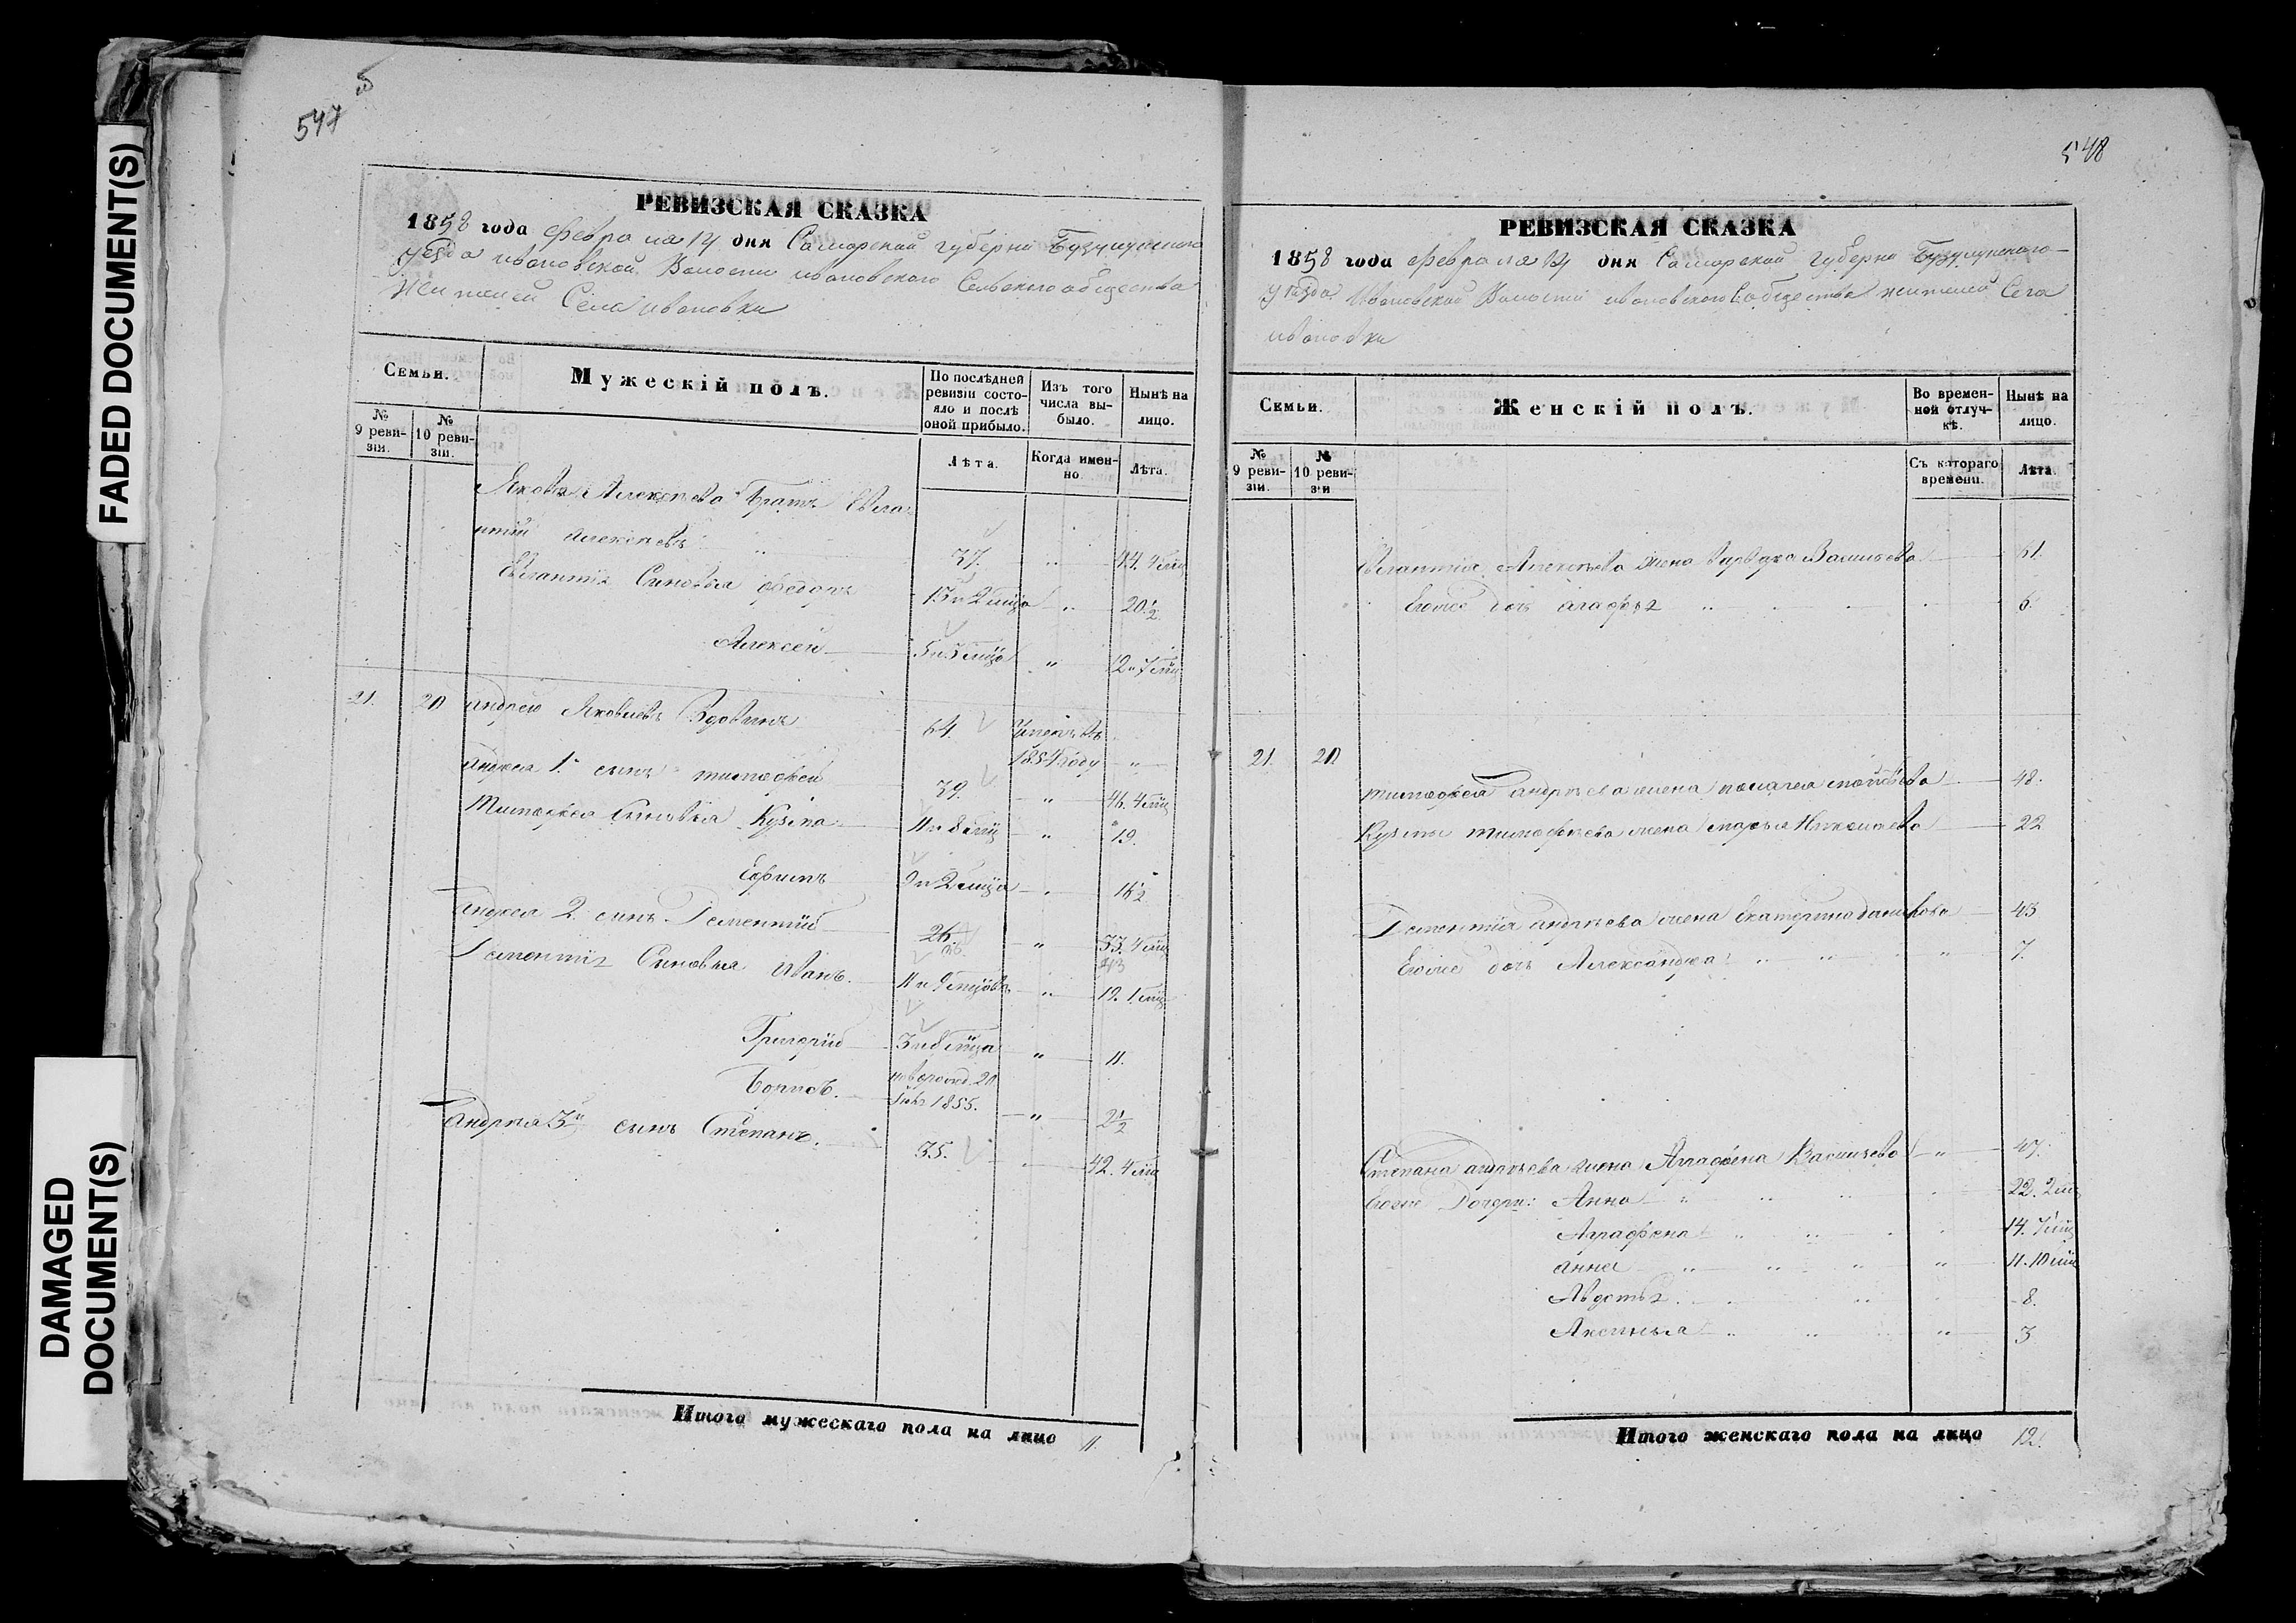 547
РЕВИЗСКАЯ СКАЗКА
1858 года февраля 14 дня Самарской губерни Бузулукского
уезда ивановской Волости ивановского Сельского общества
жителей Села ивановки
Семьи.
Мужескій полъ.
По послѣдней ревизіи состояло и послѣ оной прибыло.
Изъ того числа выбыло.
Нынѣ на лицо.
№ 9 ревизіи.
№ 10 ревизіи.
Лѣта.
Когда именно
Лѣта.
Якова Алексеева Братъ Евла-
мпій Алексеевъ 37. " 44. 4 мц
Евлампія Сыновья Федоръ 13 и 2 мца " 20 1/2
Алексей 5 и 3 мца " 12 и 7 мц
21. 20 андрей Яковлевъ 64. 1854 году "
андрея 1. сынъ тимофей 39. " 46. 4 мц
Тимофея Сыновья Кузма 11 и 8 мц " 19.
Ефимъ 9 и 2 мца " 16 1/2
андрея 2. сынъ Дементій 26. " 33. 4 мц
Дементія Сыновья Иванъ. 11 и 9 мцовъ " 19. 1 мц
Григорій 3 и 8 мца " 11.
Борисъ. 1855. " 2 1/2
андрея 3й сынъ Степанъ. 35. " 42. 4 мц
Итого мужескаго пола на лицо 11.
548
РЕВИЗСКАЯ СКАЗКА
1858 года февраля 14 дня Самарской губерни Бузулукского
уезда Ивановской Волости ивановского С общества жителей Села
ивановки
Семьи.
Женскій полъ.
Во временной отлучкѣ.
Нынѣ на лицо.
№ 9 ревизіи.
№ 10 ревизіи
Съ котораго времени.
Лѣта.
Евлампія Алексеева жена Варвара Васильева 61.
Евоже дочь агафья " 6.
21. 20
тимофея андреева жена пелагея 48.
Кузмы тимофеева жена марья Николаева 22
Дементія андреева жена Екатерина данилова 43
Евоже дочь Александра " " " 7.
Степана андреева жена Аграфена Васильева " 47.
Евоже Дочери: Анна " " " 22. 2 мц
Аграфена " " 14. 7 мц
анна " " " " 11. 10 мц
Авдотья " 8.
Аксинья " " " 3
Итого женскаго пола на лицо 12.
FADED DOCUMENT(S)
DAMAGED
DOCUMENT(S)